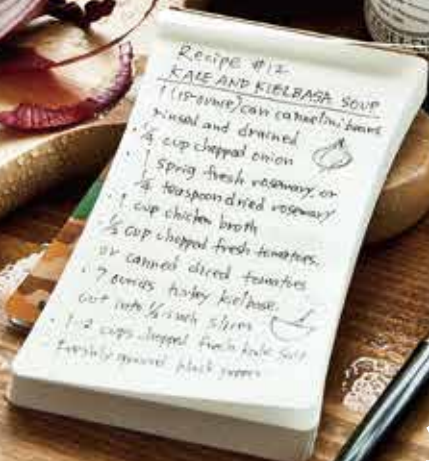 Recipe #12
KALE AND KIELBASA SOUP
1 (15-ounce) can cannellini beans
rinsed and drained
· 1/4 cup chopped onion
· 1 sprig fresh rosemary, or
1/4 teaspoon dried rosemary
· 1 cup chicken broth
· 1/2 cup chopped fresh tomatoes,
or canned diced tomatoes
· 7 ounces turkey kielbasa,
cut into 1/4 inch slices
· 1-2 cups chopped fresh kale salt
freshly ground black pepper